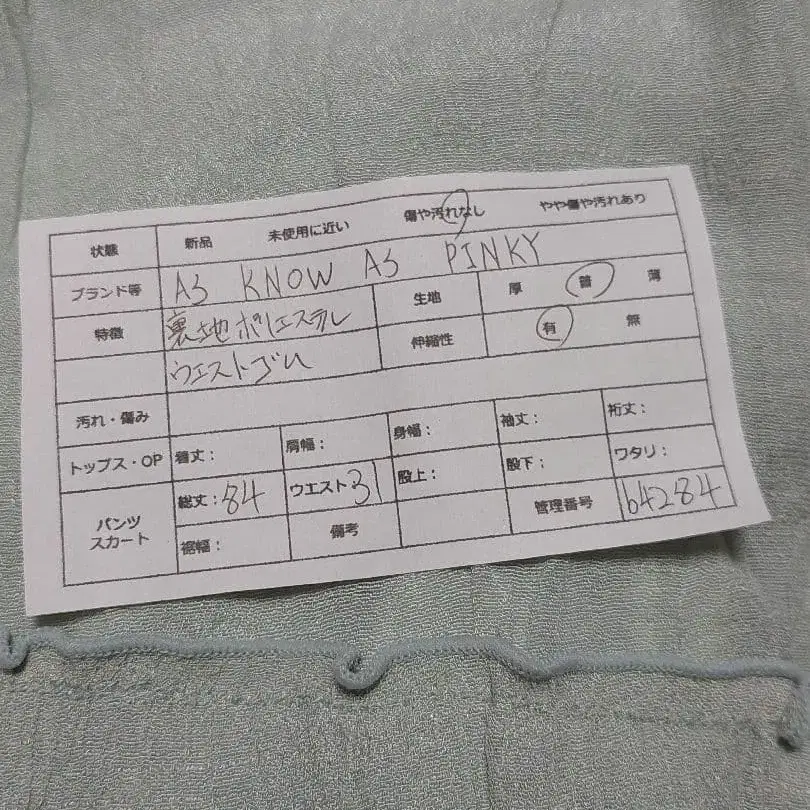 状態 新品 未使用に近い 傷や汚れなし やや傷や汚れあり
ブランド等 AS KNOW AS PINKY
特徴 裏地ポリエステル 生地 厚 普 薄
ウエストゴム 伸縮性 有 無
汚れ・傷み
トップス・OP 着丈: 肩幅: 身幅: 袖丈: 裄丈:
パンツ スカート 総丈:84 ウエスト31 股上: 股下: ワタリ:
裾幅: 備考 管理番号 64284